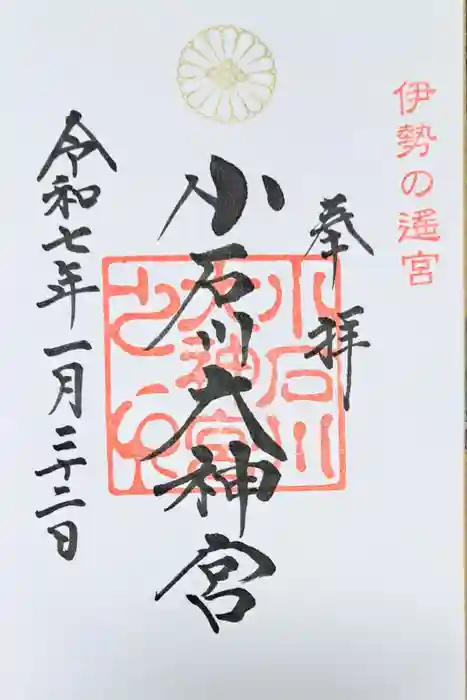 伊勢の遥宮
奉拝
小石川大神宮
小石川
大神宮
之印
令和七年一月二十二日